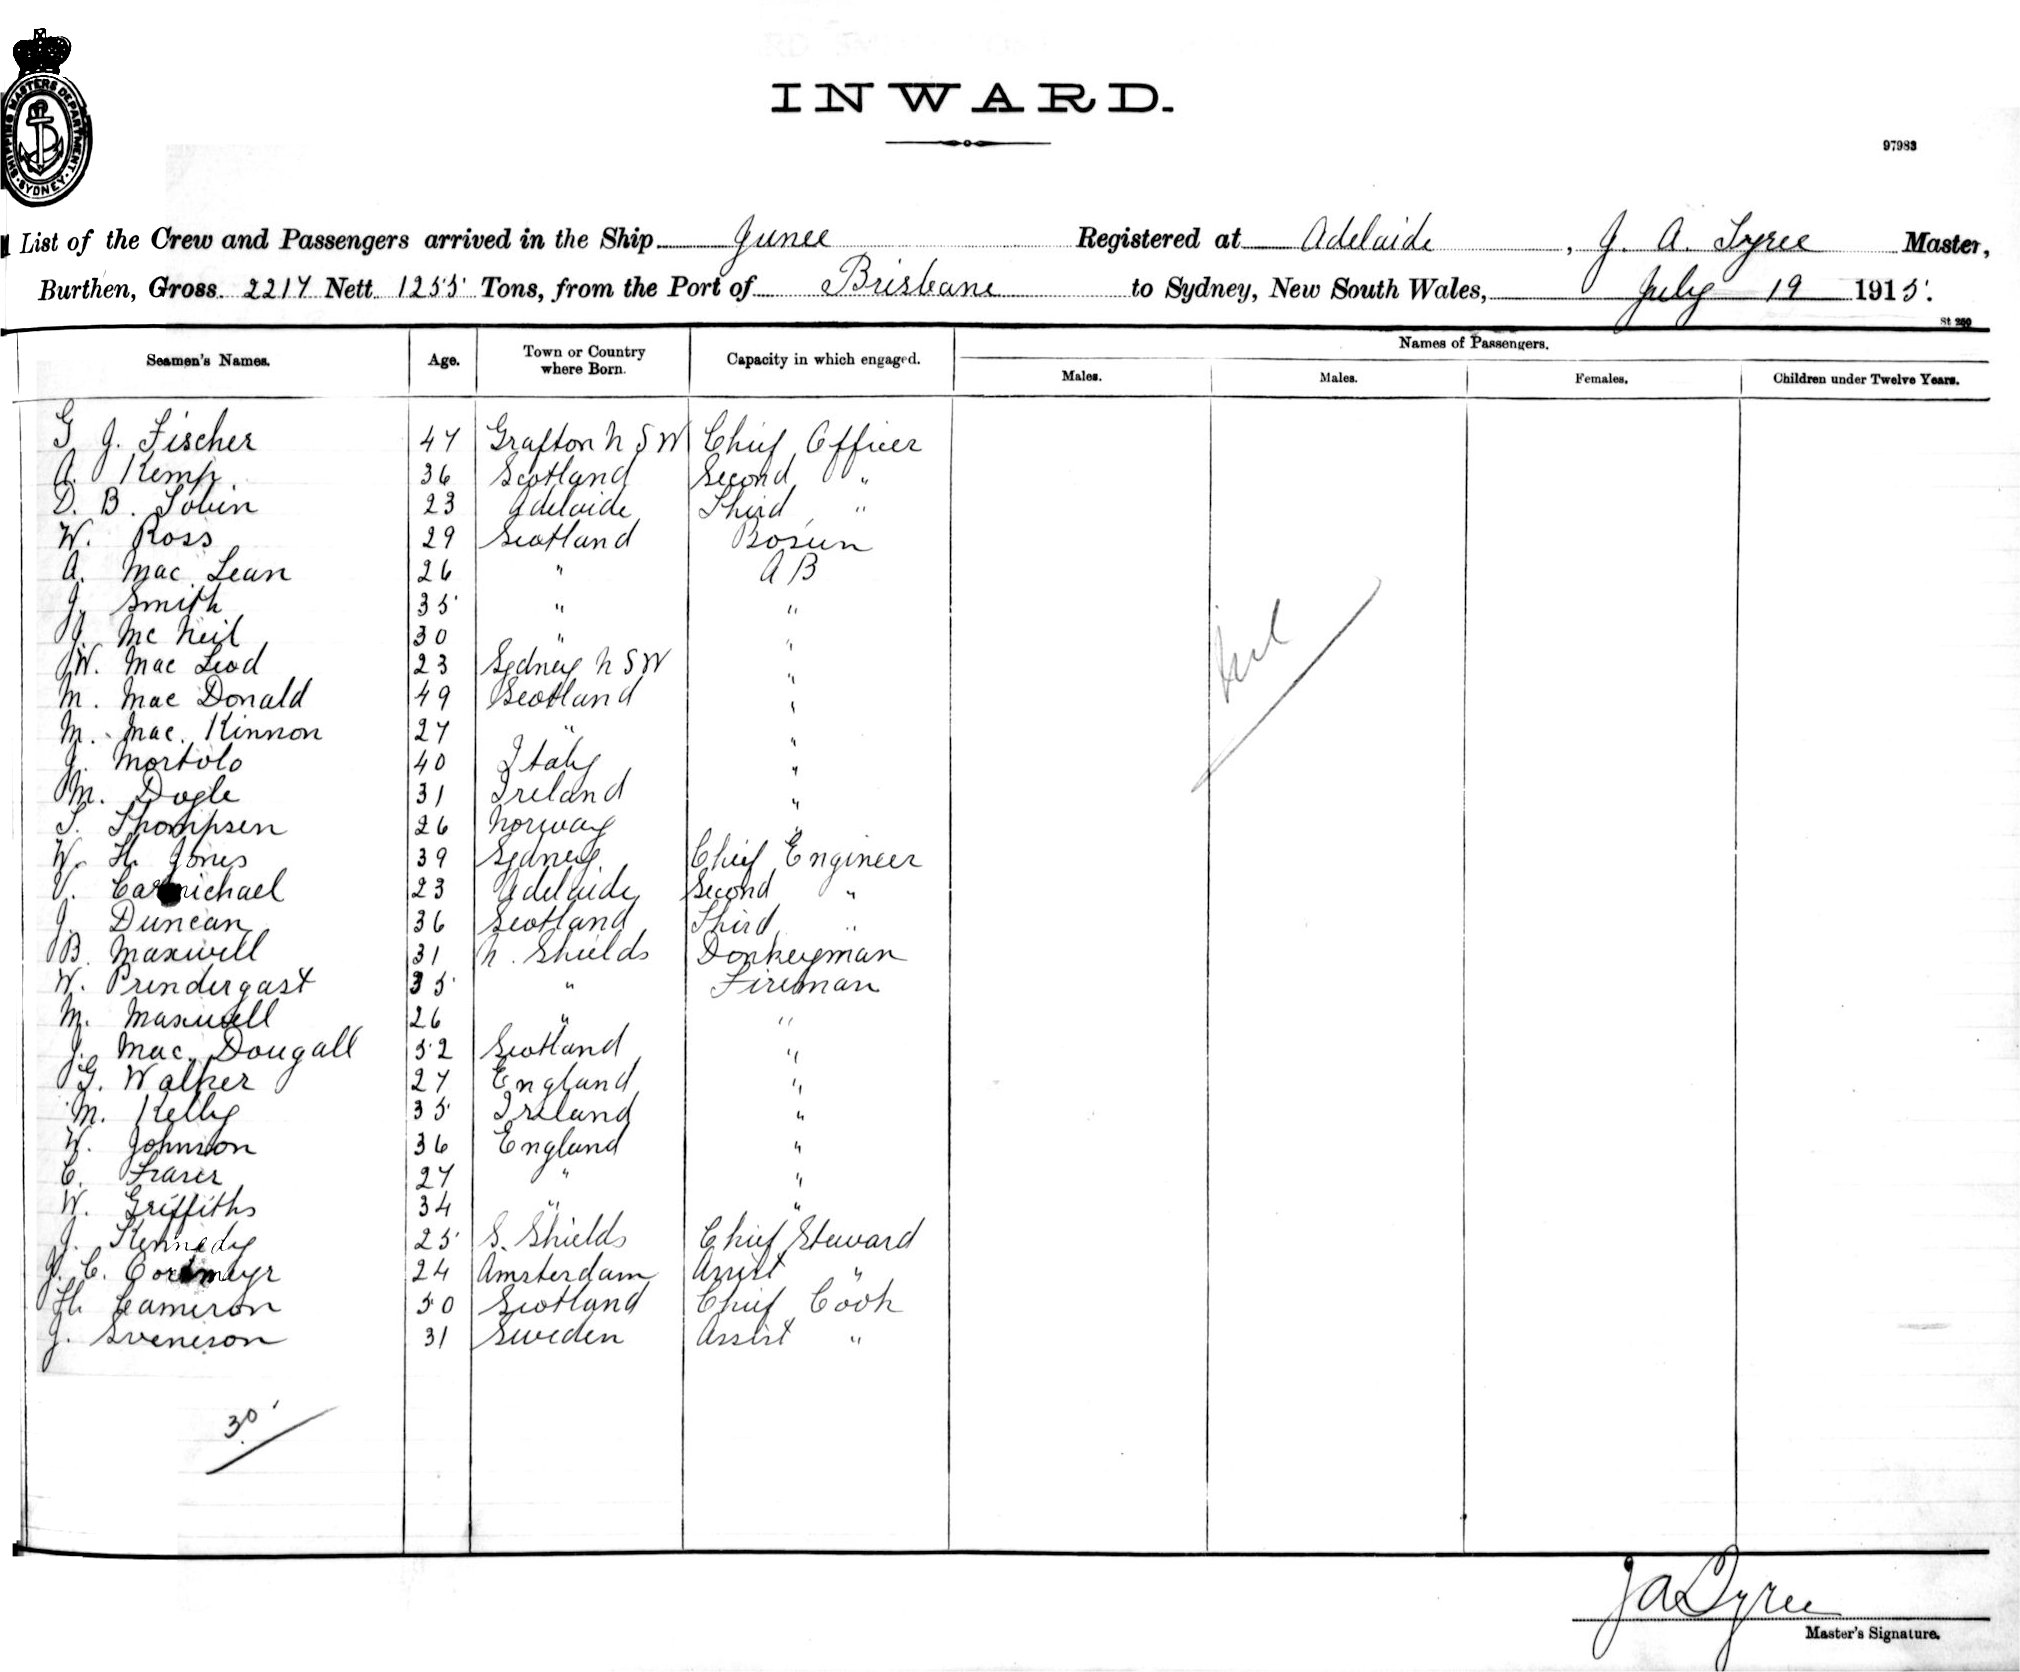 SHIPPING MASTERS DEPARTMENT. SYDNEY.
INWARD.
97983
List of the Crew and Passengers arrived in the Ship Junee Registered at Adelaide, J. A. Tyree Master,
Burthen, Gross 2217 Nett 1255 Tons, from the Port of Brisbane to Sydney, New South Wales, July 19 1915.
St 250
Seamen's Names. Age. Town or Country where Born. Capacity in which engaged. Names of Passengers.
Males. Males. Females. Children under Twelve Years.
G J. Fischer 47 Grafton N S W Chief Officer
A. Kemp 36 Scotland Second "
D. B. Tobin 23 Adelaide Third "
W. Ross 29 Scotland Bosun
A. Mac Lean 26 " A B
J. Smith 35 " "
J. Mc Neil 30 " "
W. Mac Leod 23 Sydney N S W "
M. Mac Donald 49 Scotland "
M. Mac Kinnon 27 " "
J. Mortolo 40 Italy "
M. Dogle 31 Ireland "
T. Thompsen 26 Norway "
W. H. Jones 39 Sydney Chief Engineer
V. Carmichael 23 Adelaide Second "
J. Duncan 36 Scotland Third "
B. Maxwell 31 N. Shields Donkeyman
W. Prendergast 35 " Fireman
M. Maxwell 26 " "
J. Mac Dougall 52 Scotland "
G. Walker 27 England "
M. Kelly 35 Ireland "
W. Johnson 36 England "
C. Fraser 27 " "
W. Griffiths 34 " "
J. Kennedy 25 S. Shields Chief Steward
J. C. 24 Amsterdam Assist "
H. Cameron 50 Scotland Chief Cook
J. Sveneson 31 Sweden Assist "
Nil
30
J A Tyree
Master's Signature.